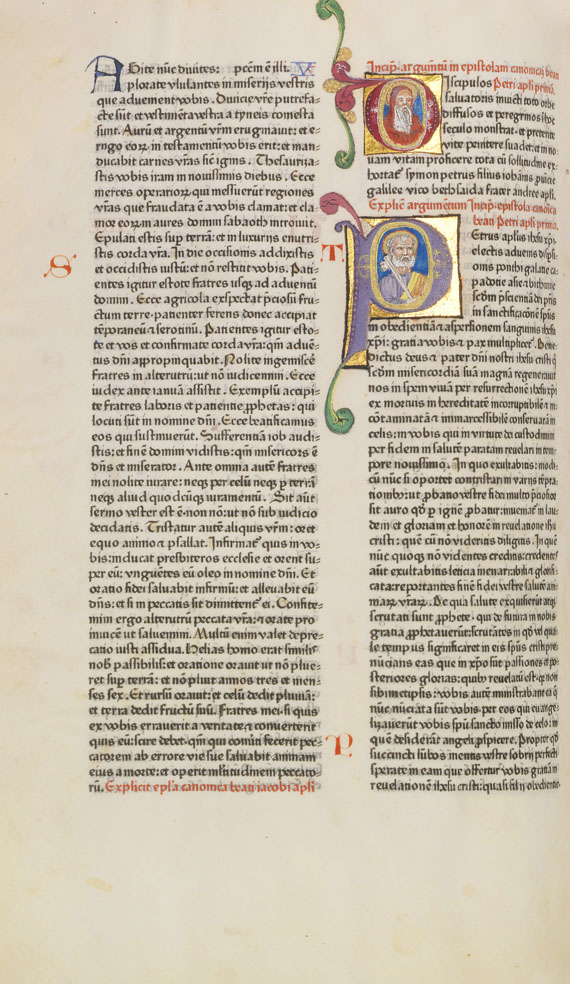 A Gite nūc diuites: pccm ē illi. V
plorate vlulantes in miserijs vestris
que aduenient vobis. Diuicie vr̄e putrefa-
cte sūt et vestimēta vestra a tyneis comesta
sunt. Aurū et argentū vr̄m eruginauit: et e-
rugo eoꝝ in testamentū vobis erit: et man-
ducabit carnes vr̄as sic ignis. Thesauriza-
stis vobis iram in nouissimis diebus. Ecce
merces operarioꝝ qui messuerūt regiones
vr̄as que fraudata ē a vobis clamat: et cla-
mor eoꝝ in aures domini sabaoth introiuit.
Epulati estis sup terrā: et in luxurijs enutri-
stis corda vr̄a. In die occisionis addixistis
S
et occidistis iustū: et nō restitit vobis. Pati-
entes igitur estote fratres usqꝫ ad aduentū
domini. Ecce agricola exspectat p̄ciosū fru-
ctum terre: patienter ferens donec accipiat
tēporaneū & serotinū. Patientes igitur esto-
te et vos et confirmate corda vr̄a: qm̄ aduē-
tus dn̄i appropinquabit. Nolite ingemiscē
fratres in alterutrū: ut nō iudicemini. Ecce
iudex ante ianuā assistit. Exemplū accipi-
te fratres laboris et patientie, ꝓphetas: qui
locuti sūt in nomine dn̄i. Ecce beatificamus
eos qui sustinuerūt. Sufferentiā iob audi-
stis: et finē domini vidistis: qm̄ misericors ē
dn̄s et miserator. Ante omnia autē fratres
mei nolite iurare: neqꝫ per celū neqꝫ ꝑ terrā
neqꝫ aliud quodcūqꝫ iuramentū. Sit aūt
sermo vester est ē: non nō: ut nō sub iudicio
decidatis. Tristatur autē aliquis vr̄m: oret
equo animo & psallat. Infirmat̄ quis in vo-
bis: inducat presbiteros ecclesie et orent su-
per eū: vnguētes eū oleo in nomine dn̄i. Et
oratio fidei saluabit infirmū: et alleuabit eū
dn̄s: et si in peccatis sit dimittenf̄ ei. Confite-
mini ergo alterutrū peccata vr̄a: & orate pro
inuicē ut saluemini. Multū enim valet depre-
catio iusti assidua. Helias homo erat similis
nob̄ passibilis: et oratione orauit ut nō plue-
ret sup terrā: et nō pluit annos tres et men-
ses sex. Et rursū orauit: et celū dedit pluuiā:
et terra dedit fructū suū. Fratres mei: si quis
ex vobis errauerit a veritate, & conuerterit
quis eū: scire debet qm̄ qui cōuerti fecerit pec-
catorem ab errore vie sue saluabit animam
eius a morte: et operit mltitudinem peccato-
rū. Explicit epl̄a canonica beati iacobi apl̄i
Incip̄. argumtū in epistolam canonicā beati
Petri apl̄i primā.
D Iscipulos
saluatoris inuicti toto orbe
diffusos et peregrinos ī hoc
seculo monstrat, et preterite
vite penitere suadet: et in no-
uam vitam proficere tota cū sollitudine ex-
hortat̄. symon petrus filius iohānis ꝓuincie
galilee vico bethsaida frater andree apl̄i.
Explic̄ argumentum Incip̄. epistola canōica
beati Petri apl̄i prima.
T
P Etrus apl̄us ih̄u xp̄i
electis aduenis dispsi-
onis ponthi galatie ca-
padotie asie & bithinie
scdm p̄scientiā dei pr̄is
in sanctificacōne sp̄us
in obedientiā & aspersionem sanguinis ih̄u
xp̄i: gratia vobis & pax multiplicet̄. Bene-
dictus deus & pater dn̄i nostri ih̄u cristi q̄
scdm misericordiā suā magnā regenerauit
nos in spem viuā per resurrectionē ih̄u xp̄i
ex mortuis in hereditatē incorruptibilē & in-
cōtaminatā & immarcessibilē conseruatā in
celis: in vobis qui in virtute dei custodimini
per fidem in salutē paratam reuelari in tem-
pore nouissimo. In quo exultabitis: modi-
cū nūc si oportet contristari in varijs tēpta-
tionibꝫ: ut ꝓbatio vestre fidei multo p̄ciosior
sit auro qd̄ ꝑ ignē ꝓbatur: inueniat̄ in lau-
dem et gloriam et honorē in reuelatione ih̄u
cristi: quē cū nō videritis diligitis. In quē
nūc quoqꝫ nō videntes creditis: credentes
aūt exultabitis leticia inenarrabili & glorifi-
cata: reportantes finē fidei vestre salutē ani-
maꝝ vr̄aꝝ. De qua salute exquisierūt atqꝫ
scrutati sunt ꝓphete, qui de futura in nobis
gratia ꝓphetauerūt: scrutātes in qd̄ vel qua-
le tempus significaret in eis sp̄us cristi: pre-
nūcians eas que in xp̄o sūt passiones et po-
steriores glorias: quibꝫ reuelatū est: qꝫ non
sibimetipsis: vobis autē ministrabant ea q̄
nūc nūciata sūt vobis per eos qui euange-
lizauerūt vobis sp̄u sancto misso de celo: in
P
quē desiderāt angeli ꝓspicere. Propter qd̄
succincti lumbos mentis vestre sobrij perfecte
sperate in eam que offertur vobis gratiam
reuelationē ih̄esu cristi: quasi filij obedientie